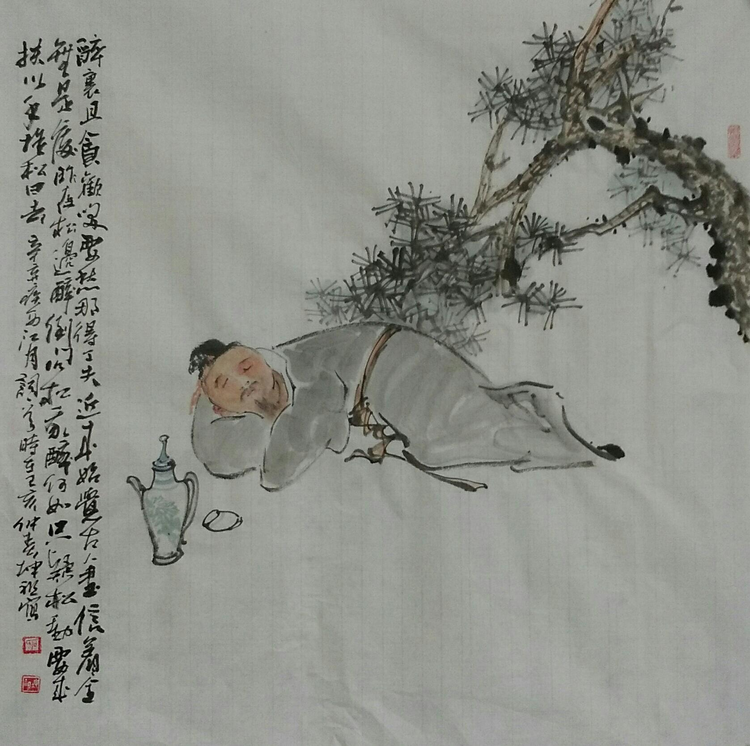 醉裏且貪歡笑要愁那得工夫近来始覺古人書信着全
無是處昨夜松邊醉倒問松我醉何如只疑松動要来
扶以手推松曰去 辛棄疾西江月詞意時在己亥仲春坤祖寫